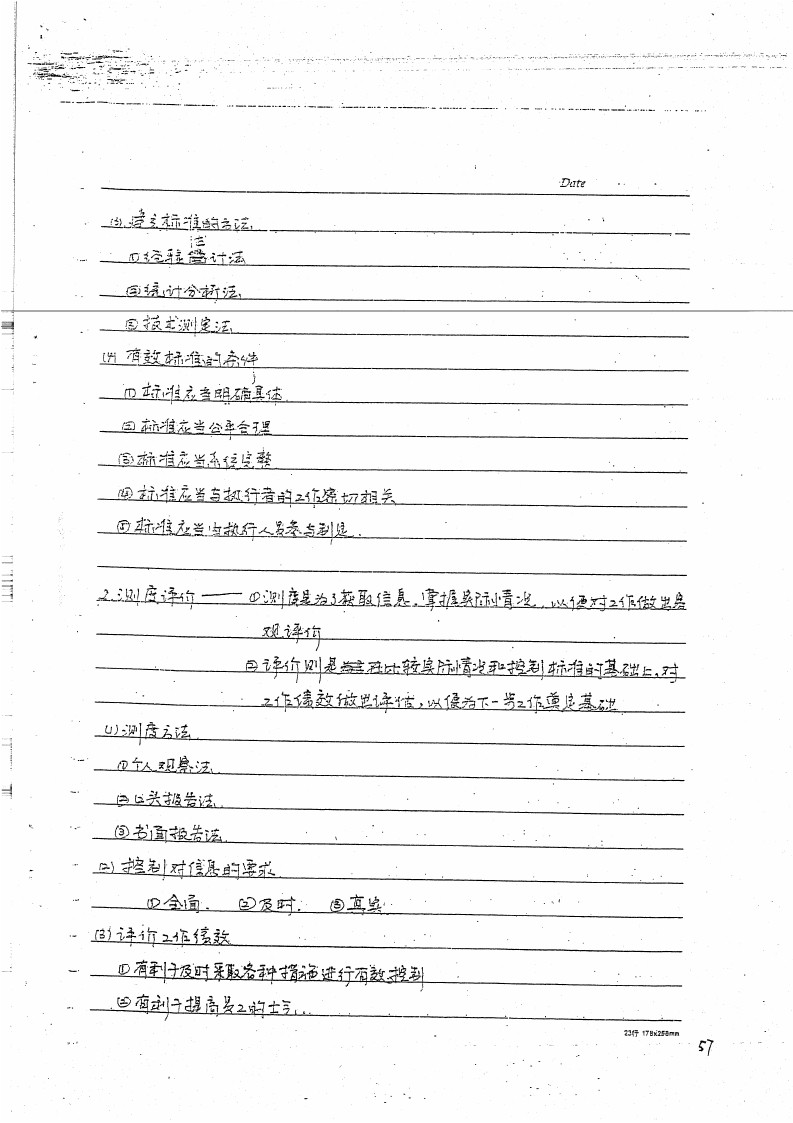 Date
(3). 建立标准的方法.
①经验估计法
②统计分析法.
③技术测定法.
(4) 有效标准的条件
①标准应当明确具体.
②标准应当公平合理
③标准应当系统完整
④标准应当与执行者的工作密切相关
⑤标准应当由执行人员参与制定.
2.测度评价——①测度是为了获取信息.掌握实际情况.以便对工作做出客
观评价
②评价则是在比较实际情况和控制标准的基础上,对
工作绩效做出评估,以便为下一步工作奠定基础
(1)测度方法.
①个人观察法.
②口头报告法.
③书面报告法.
(2)控制对信息的要求.
①全面. ②及时. ③真实.
(3)评价工作绩效
①有利于及时采取各种措施进行有效控制
②有利于提高员工的士气...
23行 178x258mm
57